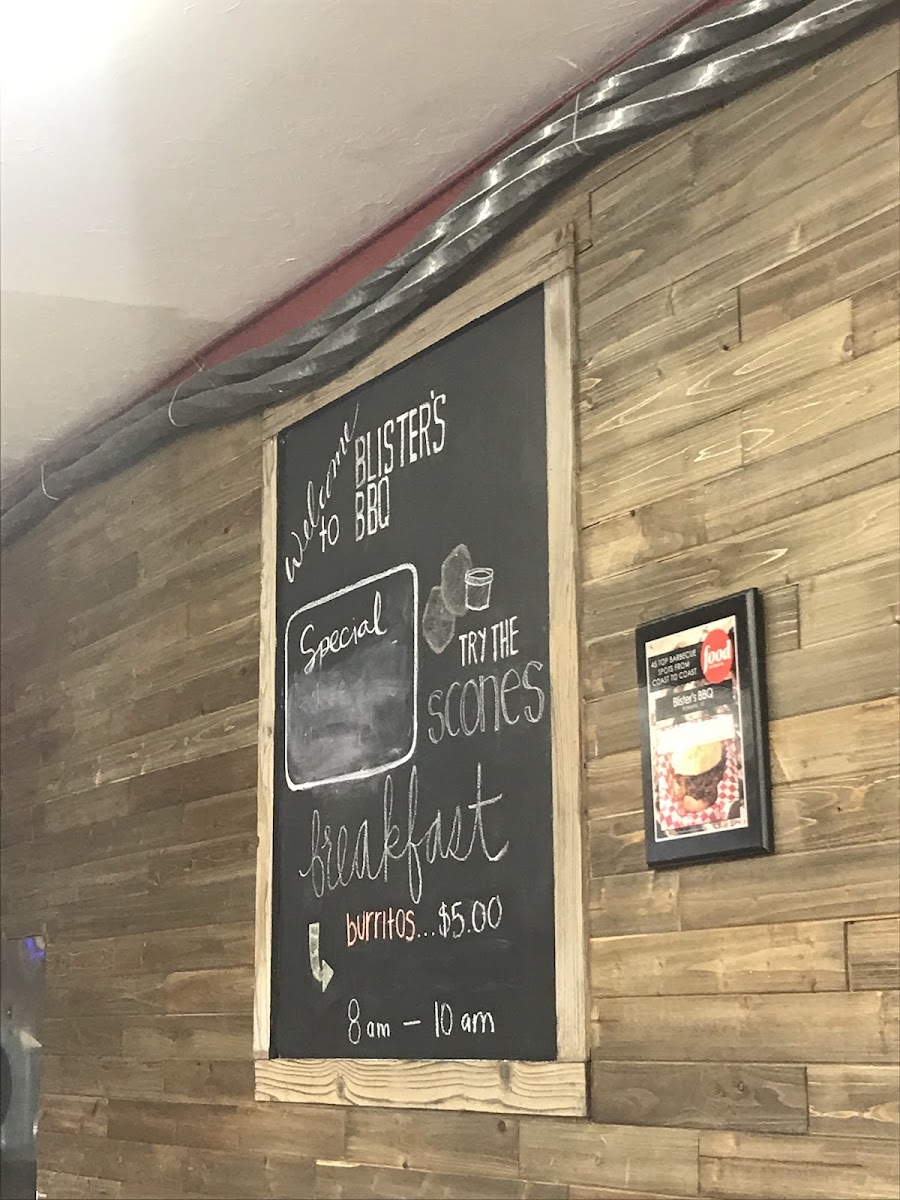 Welcome
to BLISTER'S
BBQ
Special
TRY THE
scones
breakfast
burritos...$5.00
8 am - 10 am
45 TOP BARBECUE
SPOTS FROM
COAST TO COAST
food
Blister's BBQ